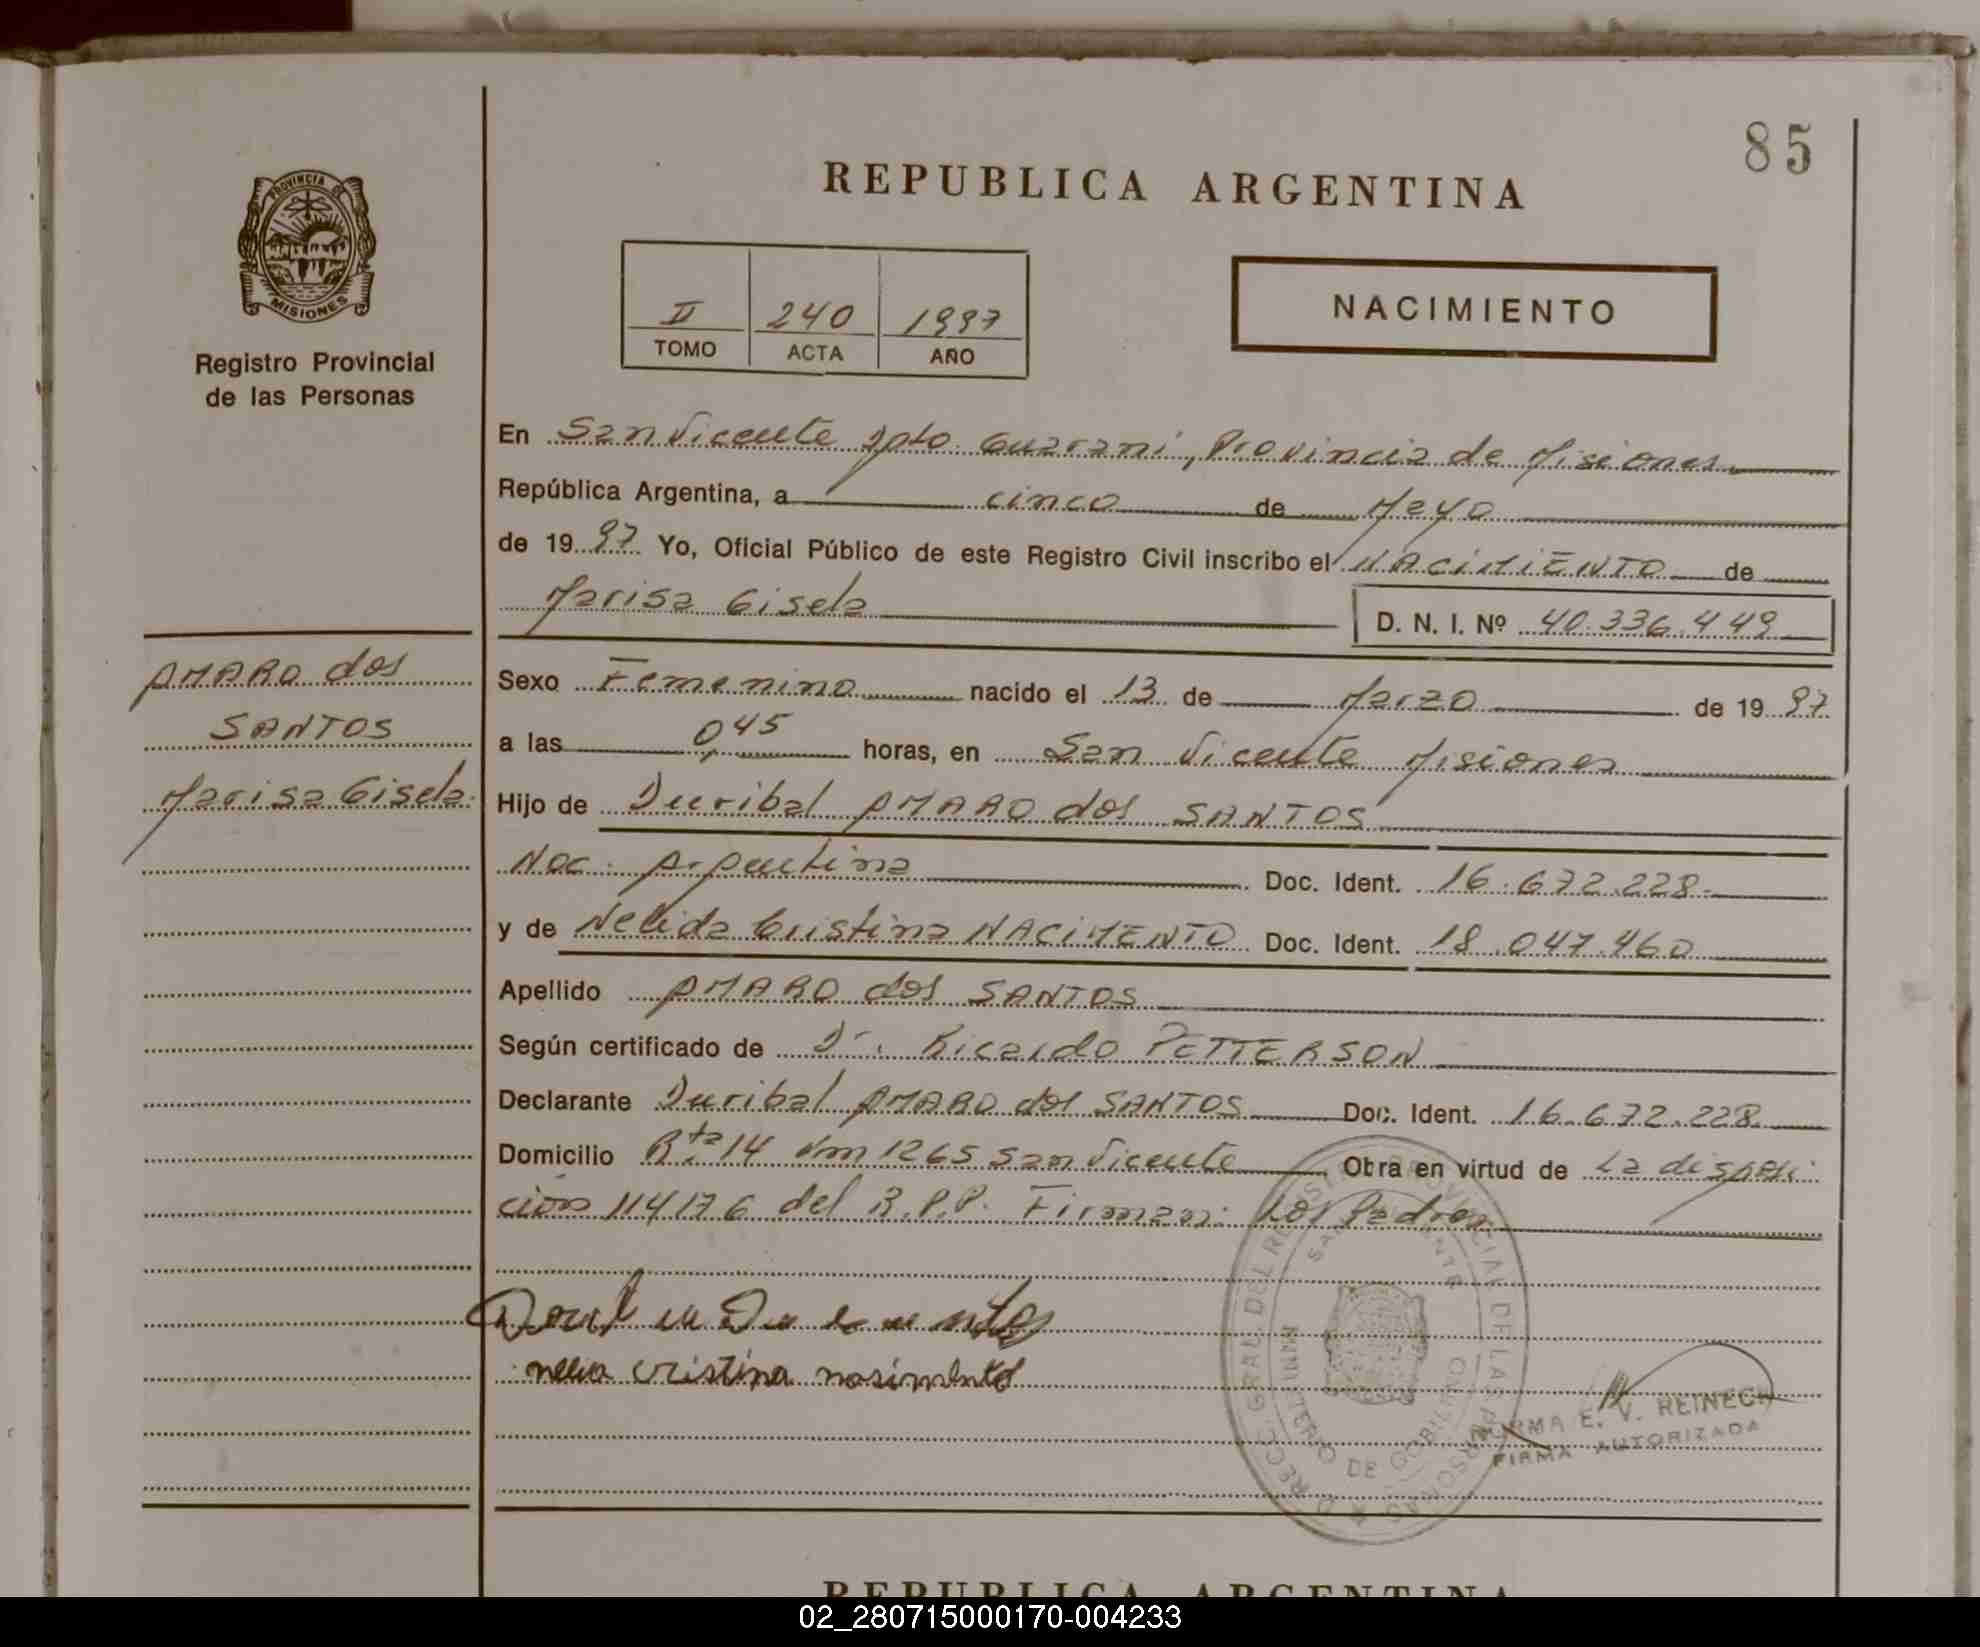 85
REPUBLICA ARGENTINA
PROVINCIA DE
MISIONES
Registro Provincial
de las Personas
II 240 1997
TOMO ACTA AÑO
NACIMIENTO
En San Vicente Dpto. Guarani, Provincia de Misiones
República Argentina, a cinco de Mayo
de 1997 Yo, Oficial Público de este Registro Civil inscribo el NACIMIENTO de
Marisa Gisela D. N. I. Nº 40.336.449
AMARO dos
SANTOS
Marisa Gisela.
Sexo Femenino nacido el 13 de Marzo de 1997
a las 0,45 horas, en San Vicente Misiones
Hijo de Duribal AMARO dos SANTOS
Nac. Argentina Doc. Ident. 16.672.228.
y de Nelida Cristina NACIMENTO Doc. Ident. 18.047.460
Apellido AMARO dos SANTOS
Según certificado de Dr. Ricardo PETTERSON
Declarante Duribal AMARO dos SANTOS Doc. Ident. 16.672.228.
Domicilio Rta 14 km 1265 San Vicente Obra en virtud de la disposi
ción 114176 del R.P.P. Firman: Los Padres
cristina nasimento
DIRECC. GRAL DEL REGISTRO PROVINCIAL DE LAS PERSONAS
SAN VICENTE
MINISTERIO DE GOBIERNO
NORMA E. V. REINECK
FIRMA AUTORIZADA
REPUBLICA ARGENTINA
02_280715000170-004233